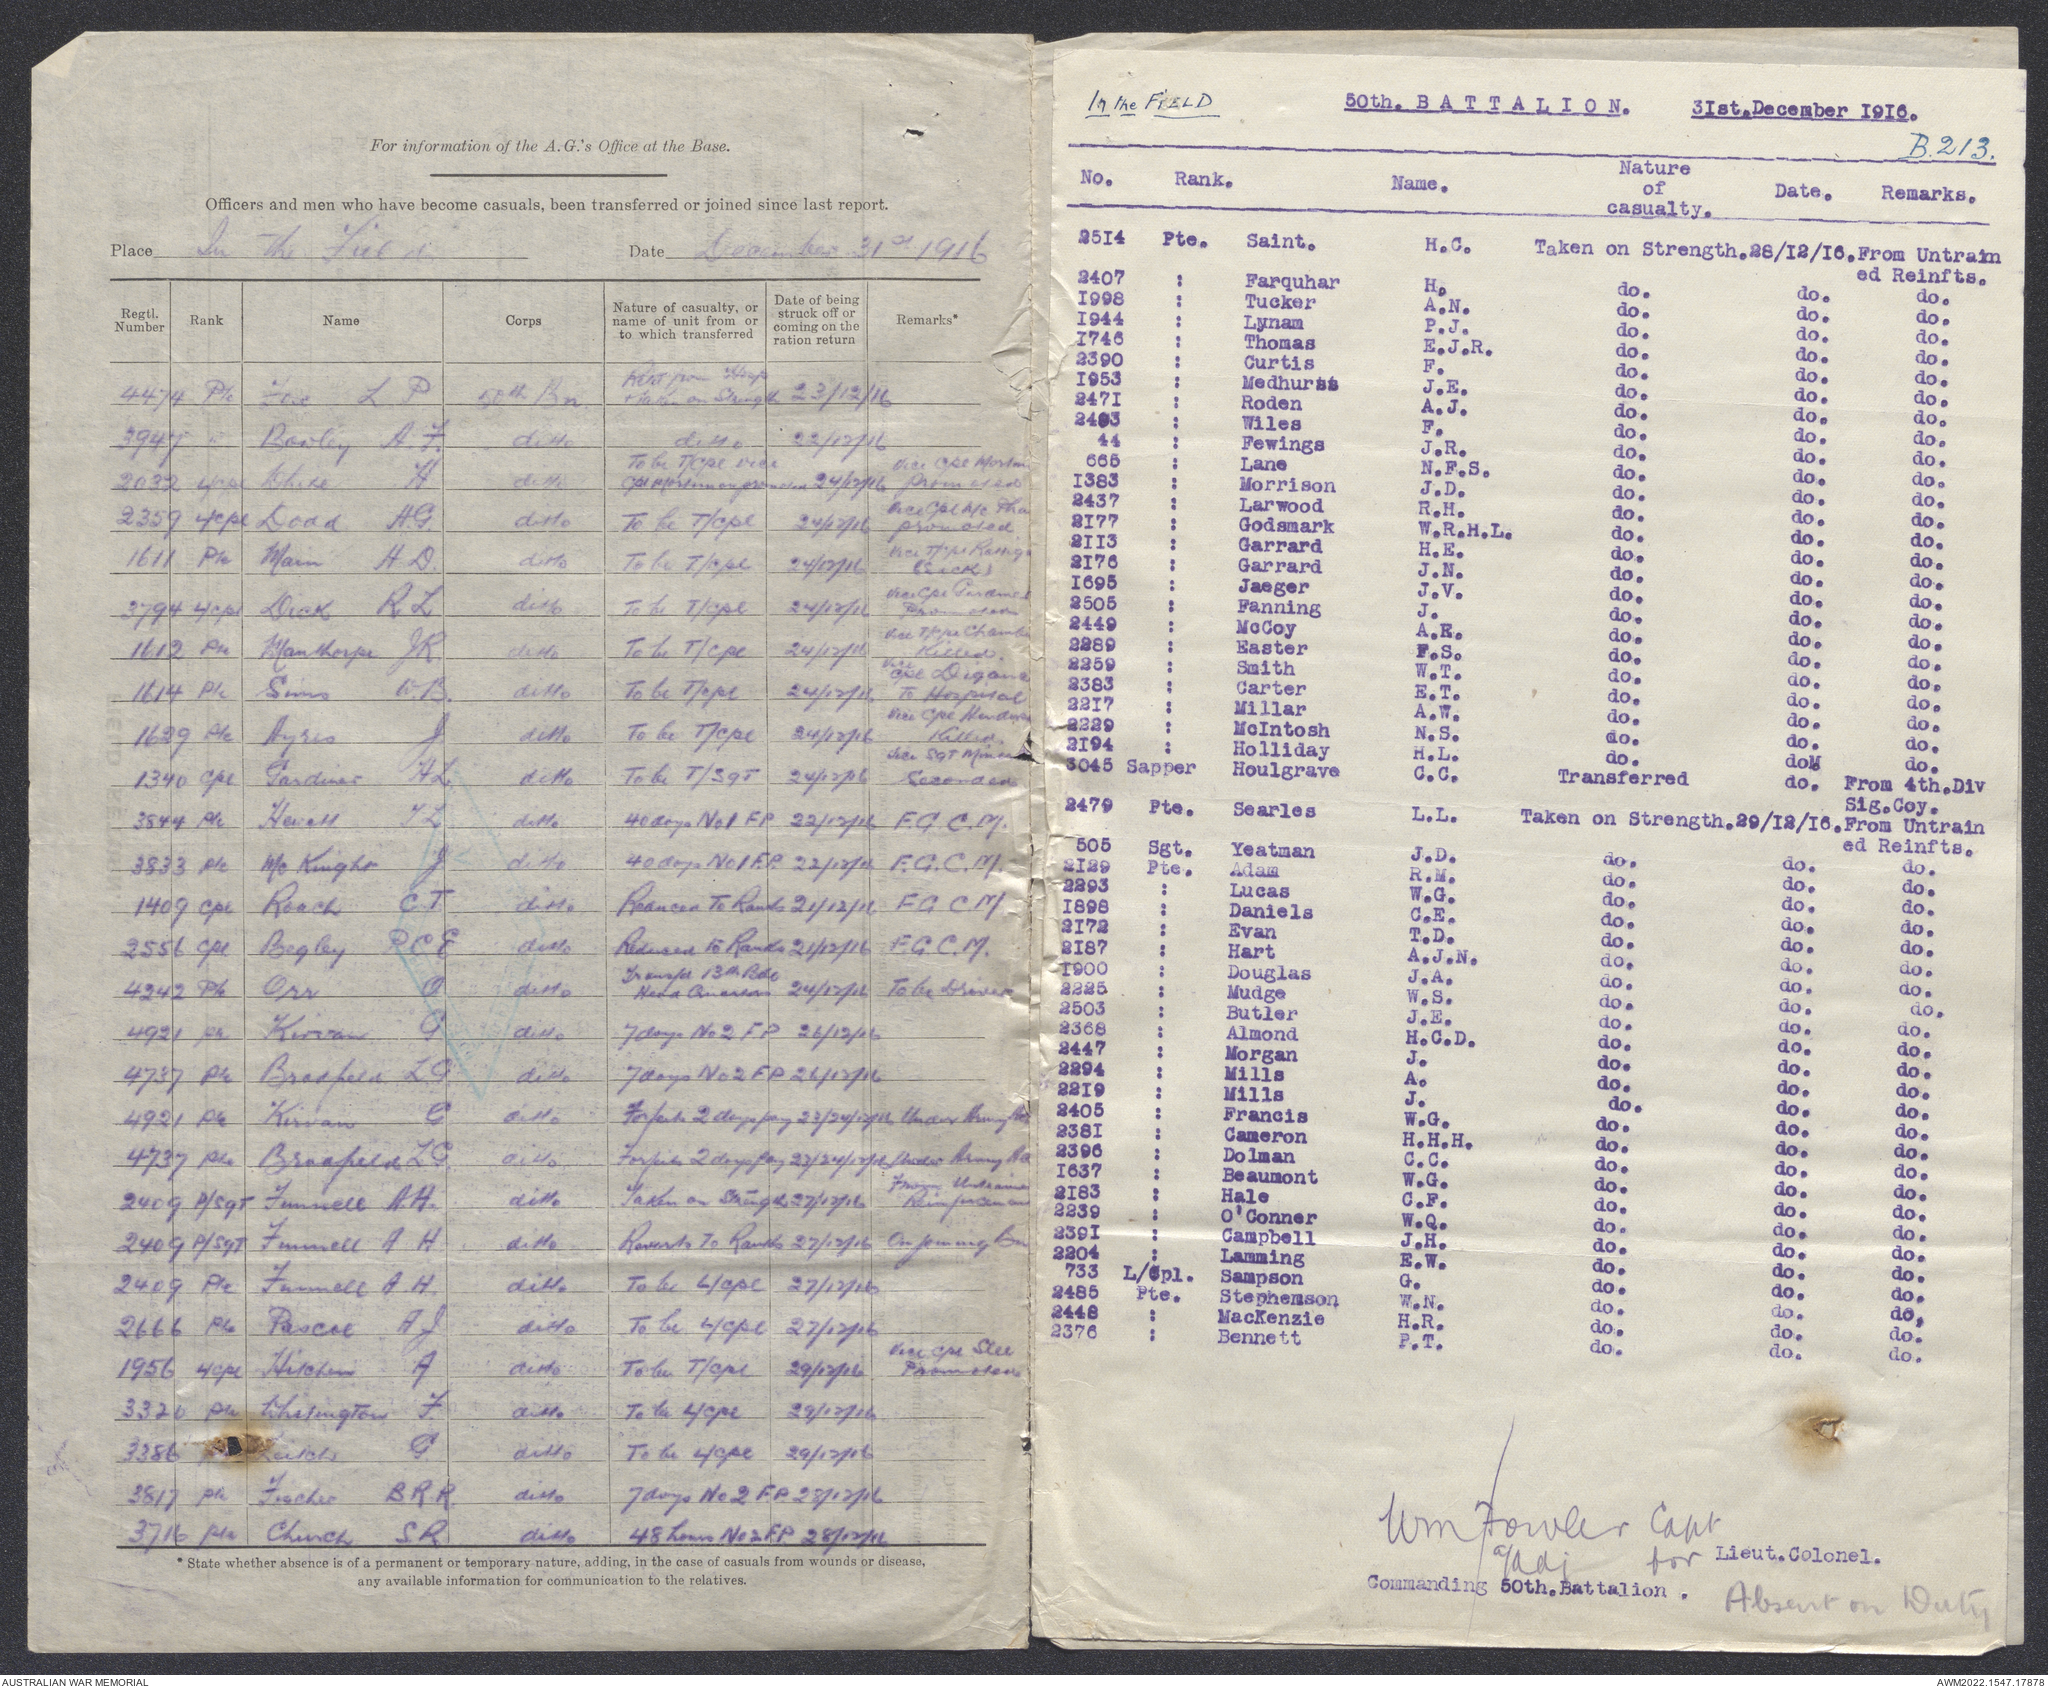 For information of the A.G.'s Office at the Base.
Officers and men who have become casuals, been transferred or joined since last report.
Place In the Field Date December 31st 1916
Regtl. Number Rank Name Corps Nature of casualty, or name of unit from or to which transferred Date of being struck off or coming on the ration return Remarks*
4474 Pte L P 50th Bn. Rejd from Hosp + taken on Strength 23/12/16
3947 " Bowley A. F. ditto ditto 22/12/16
2032 L/Cpl White H ditto To be T/Cpl vice Cpl Mortimer promoted 24/12/16 Vice Cpl promoted
2359 L/Cpl Dodd A G ditto To be T/Cpl 24/12/16 Vice Cpl promoted
1611 Pte Main H D. ditto To be T/Cpl 24/12/16 Vice T/Cpl (Sick)
3794 L/Cpl Dick R L ditto To be T/Cpl 24/12/16 Vice Cpl Promoted
1612 Pte Manthorpe J R. ditto To be T/Cpl 24/12/16 Vice T/Cpl Killed.
1614 Pte Sims W. B. ditto To be T/Cpl 24/12/16 Vice Cpl To Hospital
1629 Pte Ayres J ditto To be T/Cpl 24/12/16 Vice Cpl Killed
1340 Cpl Gardiner H L. ditto To be T/Sgt 24/12/16 Vice Sgt Seconded
3844 Pte Hewett ditto 40 days No 1 F P 22/12/16 F. G. C. M.
3833 Pte Mc Knight J ditto 40 days No 1 F. P. 22/12/16 F. G. C. M
1409 Cpl Roach C. T ditto Reduced to Ranks 21/12/16 F G C M
3556 Cpl Begley P C E ditto Reduced to Ranks 21/12/16 F. G. C. M.
4242 Pte Orr O ditto Transfd 13th Bde Head Quarters 24/12/16 To be Driver
4921 Pte Kirvan G ditto 7 days No 2 F P 26/12/16
4737 Pte Bradfield L G. ditto 7 days No 2 F P 26/12/16
4921 Pte Kirvan G ditto Forfeits 2 days pay 23/24/12/16 Under Army
4737 Pte Bradfield L G. ditto Forfeits 2 days pay 23/24/12/16 Under Army
2409 P/Sgt Funnell A. H. ditto Taken on Strength 27/12/16 From Untrained Reinforcements
2409 P/Sgt Funnell A H. ditto Reverts to Ranks 27/12/16 On joining Bn
2409 Pte Funnell A H. ditto To be L/Cpl 27/12/16
2666 Pte Pascoe A J ditto To be L/Cpl 27/12/16
1956 L/Cpl Hitchens A ditto To be T/Cpl 29/12/16 Vice Cpl Slee Promoted
3320 Pte Whisington F ditto To be L/Cpl 29/12/16
3386 Leitch G ditto To be L/Cpl 29/12/16
3817 Pte Fischer B R R. ditto 7 days No 2 F P 28/12/16
3716 Pte Church S R. ditto 48 hours No 2 F. P. 28/12/16
* State whether absence is of a permanent or temporary nature, adding, in the case of casuals from wounds or disease,
any available information for communication to the relatives.
In the FIELD 50th. BATTALION. 31st. December 1916.
B. 213.
No. Rank. Name. Nature of casualty. Date. Remarks.
2514 Pte. Saint. H.C. Taken on Strength. 28/12/16. From Untrain
ed Reinfts.
2407 : Farquhar H. do. do. do.
1998 : Tucker A.N. do. do. do.
1944 : Lynam P.J. do. do. do.
1746 : Thomas E.J.R. do. do. do.
2390 : Curtis F. do. do. do.
1953 : Medhurst J.E. do. do. do.
2471 : Roden A.J. do. do. do.
2493 : Wiles F. do. do. do.
44 : Fewings J.R. do. do. do.
665 : Lane N.F.S. do. do. do.
1383 : Morrison J.D. do. do. do.
2437 : Larwood R.H. do. do. do.
2177 : Godsmark W.R.H.L. do. do. do.
2113 : Garrard H.E. do. do. do.
2176 : Garrard J.N. do. do. do.
1695 : Jaeger J.V. do. do. do.
2505 : Fanning J. do. do. do.
2449 : McCoy A.E. do. do. do.
2289 : Easter F.S. do. do. do.
2259 : Smith W.T. do. do. do.
2383 : Carter E.T. do. do. do.
2217 : Millar A.W. do. do. do.
2229 : McIntosh N.S. do. do. do.
2194 : Holliday H.L. do. doM do.
3045 Sapper Houlgrave C.C. Transferred do. From 4th. Div
Sig. Coy.
2479 Pte. Searles L.L. Taken on Strength. 29/12/16. From Untrain
ed Reinfts.
505 Sgt. Yeatman J.D. do. do. do.
2129 Pte. Adam R.M. do. do. do.
2293 : Lucas W.G. do. do. do.
1898 : Daniels C.E. do. do. do.
2172 : Evan T.D. do. do. do.
2187 : Hart A.J.N. do. do. do.
1900 : Douglas J.A. do. do. do.
2225 : Mudge W.S. do. do. do.
2503 : Butler J.E. do. do. do.
2368 : Almond H.C.D. do. do. do.
2447 : Morgan J. do. do. do.
2294 : Mills A. do. do. do.
2219 : Mills J. do. do. do.
2405 : Francis W.G. do. do. do.
2381 : Cameron H.H.H. do. do. do.
2396 : Dolman C.C. do. do. do.
1637 : Beaumont W.G. do. do. do.
2183 : Hale C.F. do. do. do.
2239 : O'Conner W.Q. do. do. do.
2391 : Campbell J.H. do. do. do.
2204 : Lamming E.W. do. do. do.
733 L/Cpl. Sampson G. do. do. do.
2485 Pte. Stephenson W.N. do. do. do.
2448 : MacKenzie H.R. do. do. do.
2376 : Bennett P.T. do. do. do.
Wm Fowler Capt
a/Adj for Lieut. Colonel.
Commanding 50th. Battalion.
Absent on Duty
AUSTRALIAN WAR MEMORIAL
AWM2022.1547.17878